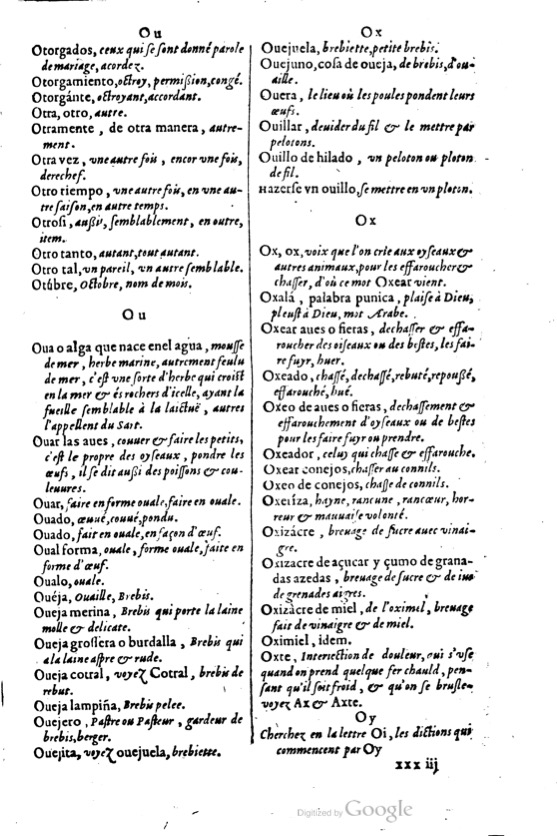 Ou
Otorgados, ceux qui se sont donné parole
de mariage, acordez.
Otorgamiento, octroy, permission, congé.
Otorgánte, octroyant, accordant.
Otra, otro, autre.
Otramente, de otra manera, autre-
ment.
Otra vez, vne autre fois, encor vne fois,
derechef.
Otro tiempo, vne autre fois, en vne au-
tre saison, en autre temps.
Otrosi, aussi, semblablement, en outre,
item.
Otro tanto, autant, tout autant.
Otro tal, vn pareil, vn autre semblable.
Otúbre, Octobre, nom de mois.
Ou
Oua o alga que nace enel agua, mousse
de mer, herbe marine, autrement feulu
de mer, c'est vne sorte d'herbe qui croist
en la mer & és rochers d'icelle, ayant la
fueille semblable à la laictuë, autres
l'appellent du Sart.
Ouar las aues, couuer & faire les petits,
c'est le propre des oyseaux, pondre les
œufs, il se dit aussi des poissons & cou-
leuures.
Ouar, faire en forme ouale, faire en ouale.
Ouado, œuué, couué, pondu.
Ouado, fait en ouale, en façon d'œuf.
Oual forma, ouale, forme ouale, faite en
forme d'œuf.
Oualo, ouale.
Ouéja, Ouaille, Brebis.
Oueja merina, Brebis qui porte la laine
molle & delicate.
Oueja grossera o burdalla, Brebis qui
a la laine aspre & rude.
Oueja cotral, voyez Cotral, brebis de
rebut.
Oueja lampiña, Brebis pelee.
Ouejero, Pastre ou Pasteur, gardeur de
brebis, berger.
Ouejita, voyez ouejuela, brebiette.
Ox
Ouejuela, brebiette, petite brebis.
Ouejuno, cosa de oueja, de brebis, d'ou-
aille.
Ouera, le lieu où les poules pondent leurs
œufs.
Ouillar, deuider du fil & le mettre par
pelotons.
Ouillo de hilado, vn peloton ou ploton
de fil.
Hazerse vn ouillo, se mettre en vn ploton.
Ox
Ox, ox, voix que l'on crie aux oyseaux &
autres animaux, pour les effaroucher &
chasser, d'où ce mot Oxear vient.
Oxalá, palabra punica, plaise à Dieu,
pleust à Dieu, mot Arabe.
Oxear aues o fieras, dechasser & effa-
roucher des oiseaux ou des bestes, les fai-
re fuyr, huer.
Oxeado, chassé, dechassé, rebuté, repoussé,
effarouché, hué.
Oxeo de aues o fieras, dechassement &
effarouchement d'oyseaux ou de bestes
pour les faire fuyr ou prendre.
Oxeador, celuy qui chasse & effarouche.
Oxear conejos, chasser au connils.
Oxeo de conejos, chasse de connils.
Oxeriza, hayne, rancune, rancœur, hor-
reur & mauuaise volonté.
Oxizàcre, breuage de sucre auec vinai-
gre.
Oxizacre de açucar y çumo de grana-
das azedas, breuage de sucre & de ius
de grenades aigres.
Oxizàcre de miel, de l'oximel, breuage
fait de vinaigre & de miel.
Oximiel, idem.
Oxte, Interiection de douleur, qui s'vse
quand on prend quelque fer chauld, pen-
sant qu'il soit froid, & qu'on se brusle,
voyez Ax & Axte.
Oy
Cherchez en la lettre Oi, les dictions qui
commencent par Oy
xxx iij
Digitized by Google